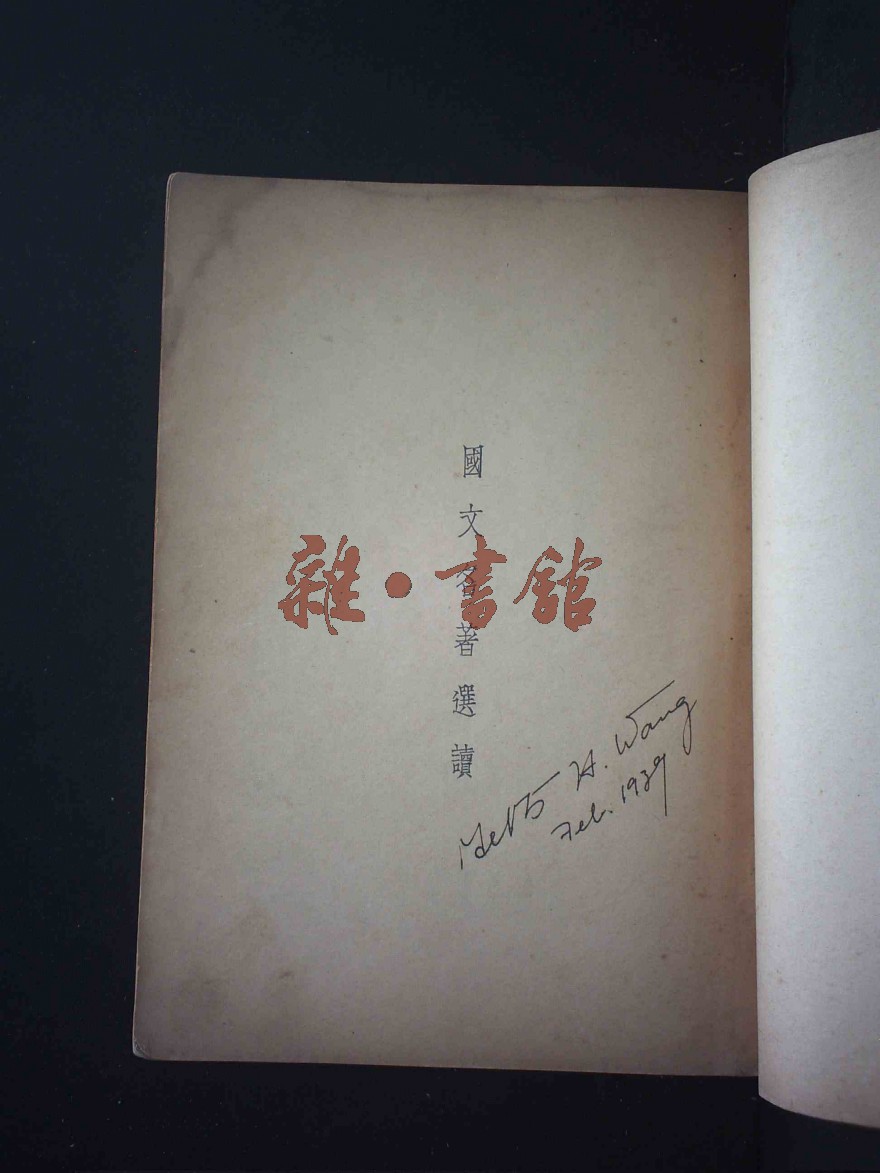 國文名著選讀
雜·書館
H. Wang
Feb. 1939